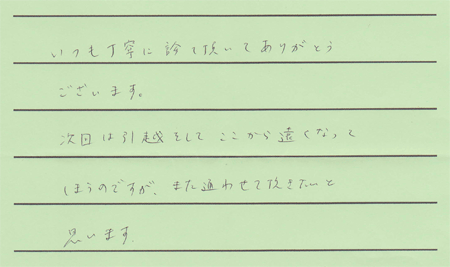 いつも丁寧に診て頂いてありがとう
ございます。
次回は引越をして ここから遠くなって
しまうのですが、また通わせて頂きたいと
思います